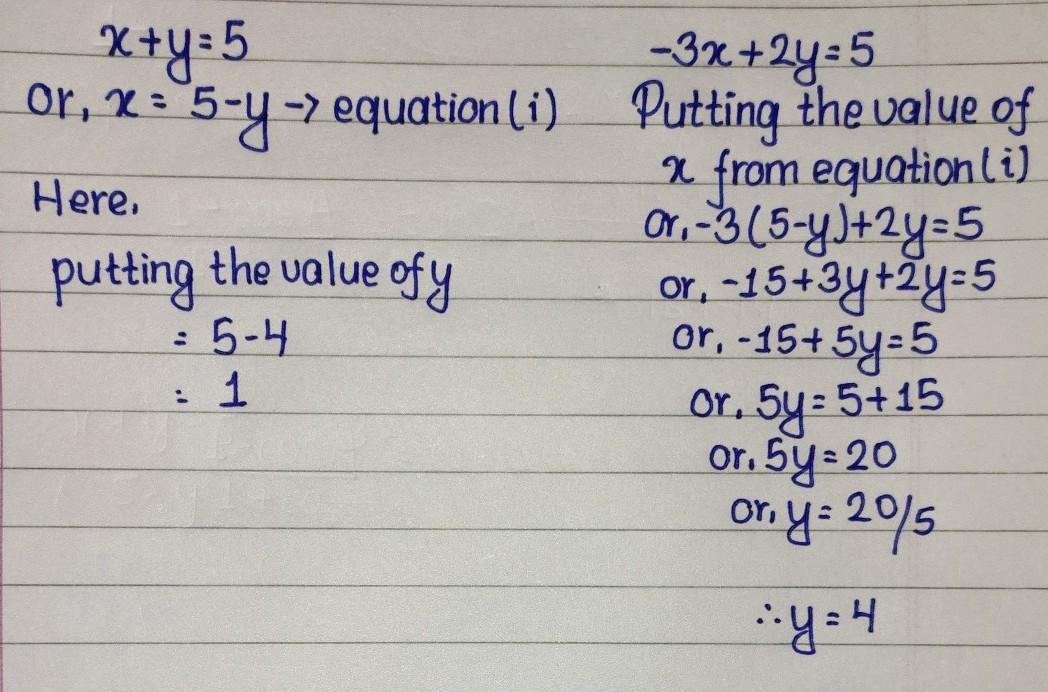 x+y=5
or, x = 5-y -> equation(i)
Here,
putting the value of y
= 5-4
= 1
-3x+2y=5
Putting the value of
x from equation(i)
or, -3(5-y)+2y=5
or, -15+3y+2y=5
or, -15+5y=5
or, 5y=5+15
or, 5y=20
or, y=20/5
∴y=4